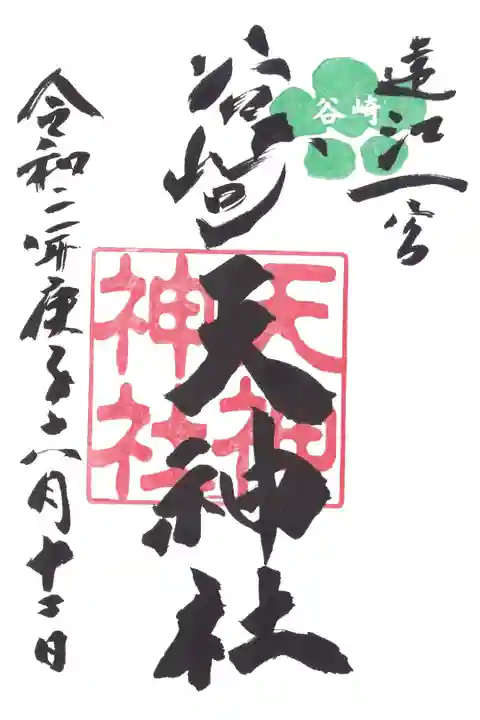 遠江一宮
谷崎
谷崎天神社
天神
神社
令和二年庚子六月十二日